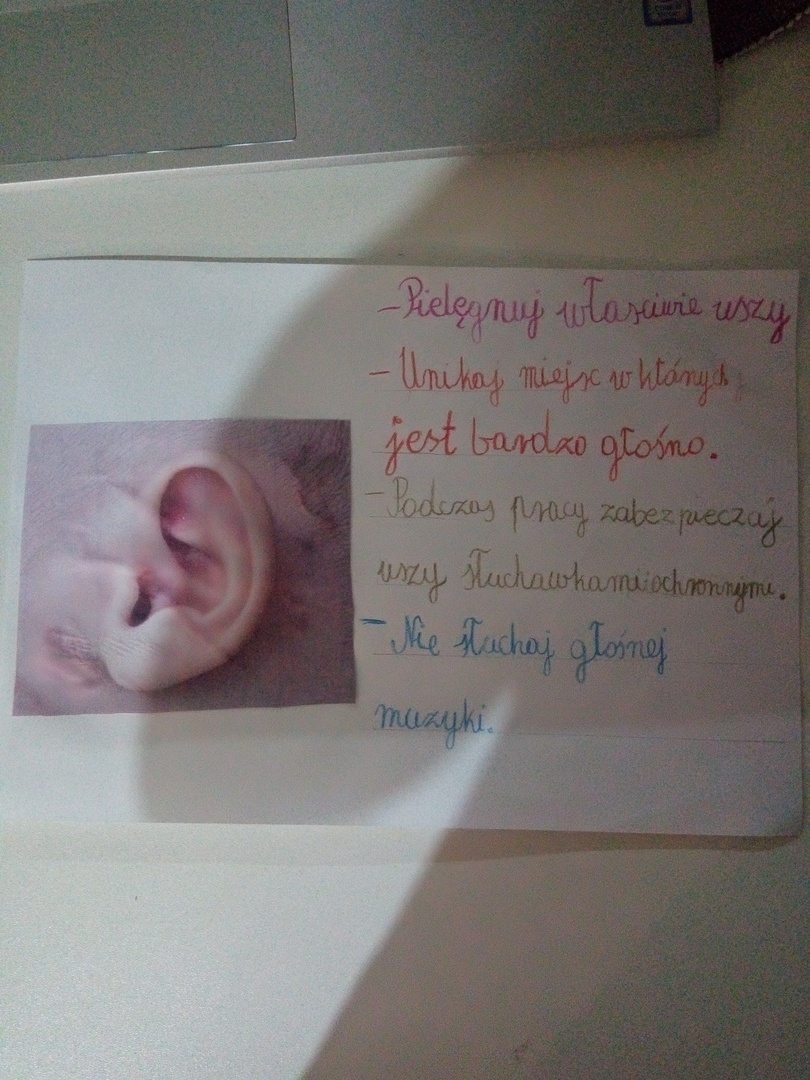 - Pielęgnuj właściwie uszy
- Unikaj miejsc w których
jest bardzo głośno.
- Podczas pracy zabezpieczaj
uszy słuchawkami ochronnymi.
- Nie słuchaj głośnej
muzyki.